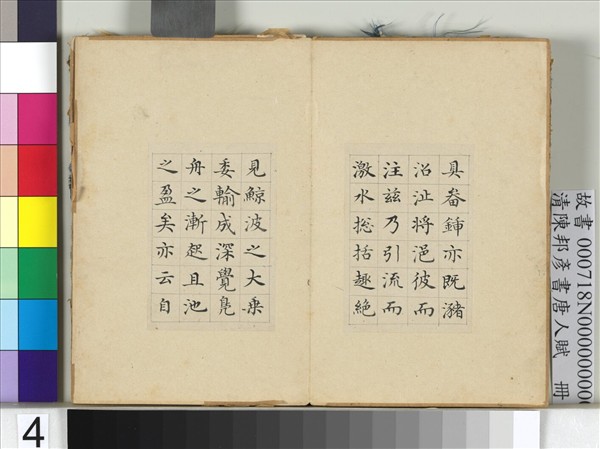 具畚鍤亦既瀦
沼沚將浥彼而
注茲乃引流而
激水捴括趣絶
見鯨波之大乘
委輸成深覺鳧
舟之漸起且池
之盈矣亦云自
故書 000718N000000000
清陳邦彥書唐人賦 冊
4